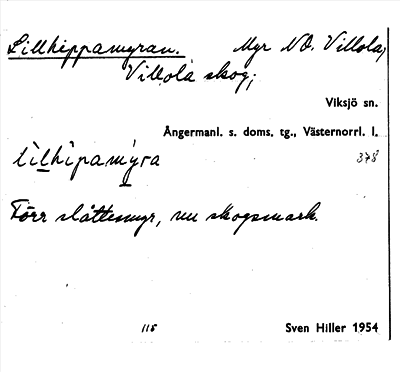 Lillhippamyran. Myr NO. Villola,
Villola skog;
Viksjö sn.
Ångermanl. s. doms. tg., Västernorrl. l.
lìlhipamýra 378
Förr slåttesmyr, nu skogsmark.
115 Sven Hiller 1954